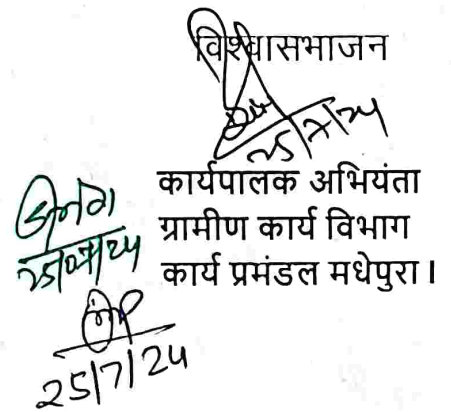 विश्वासभाजन
25/7/24
कार्यपालक अभियंता
ग्रामीण कार्य विभाग
कार्य प्रमंडल मधेपुरा।
25/07/24
25/7/24